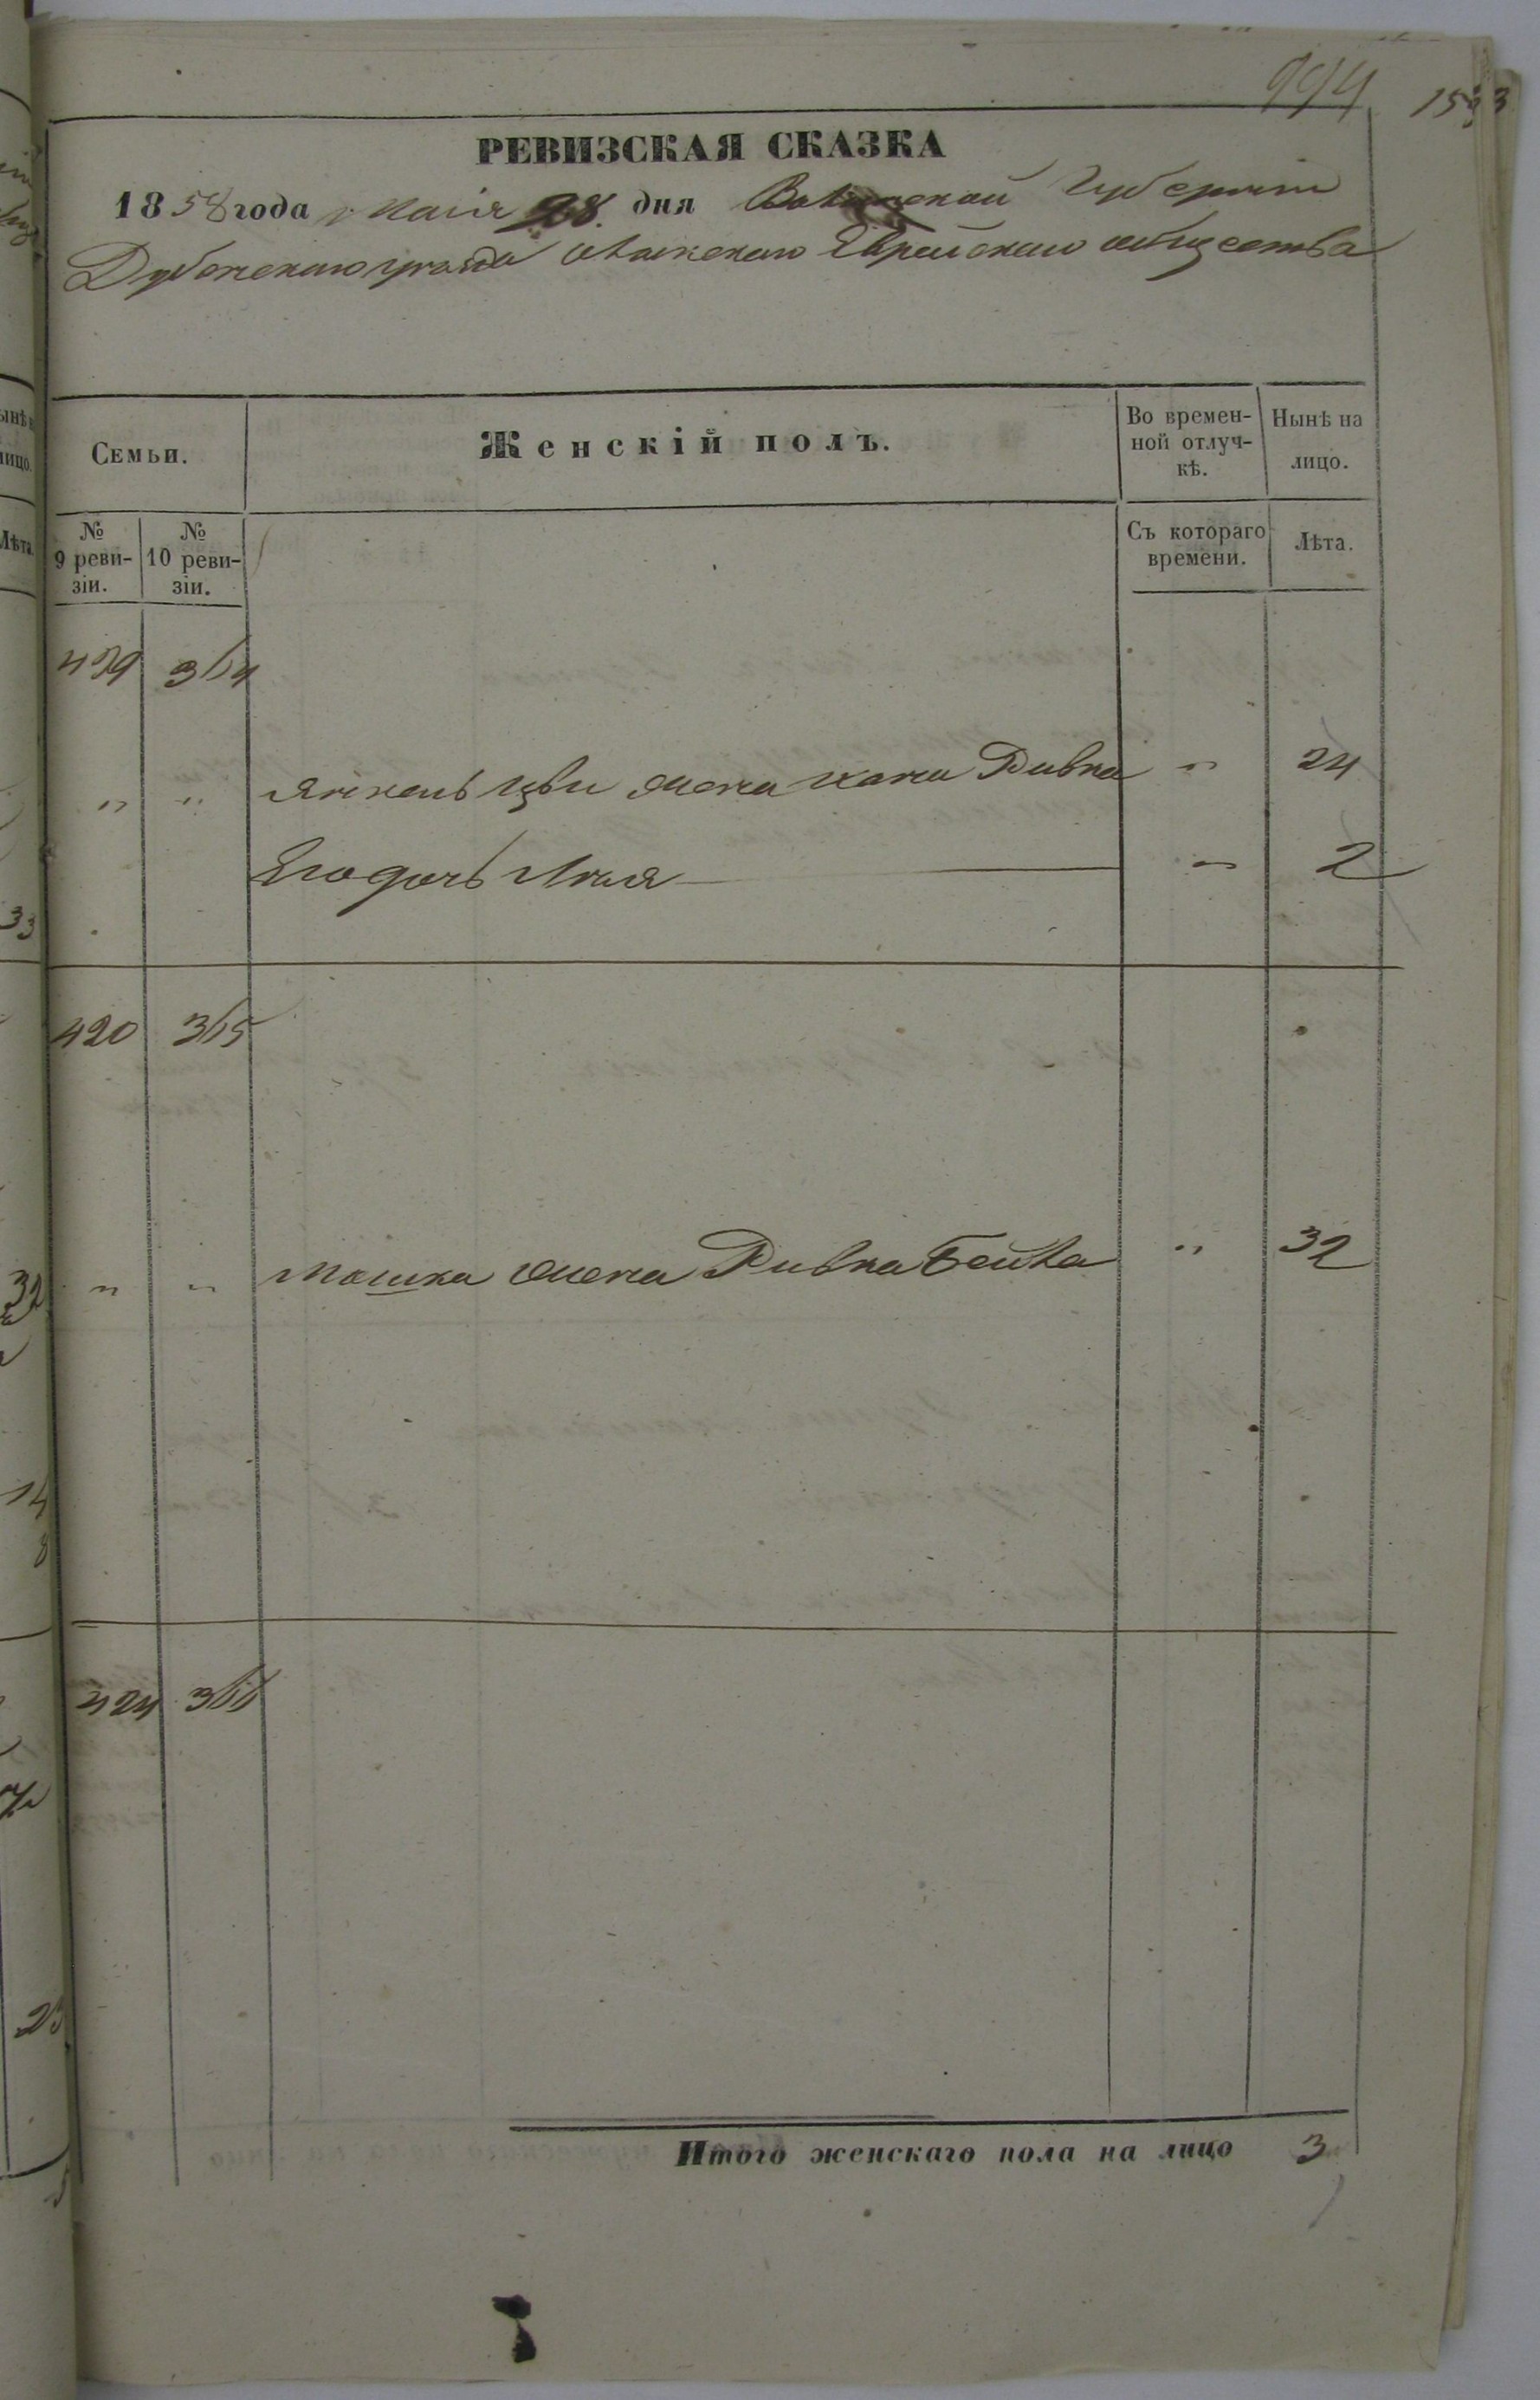 994
РЕВИЗСКАЯ СКАЗКА
1858 года маія 28 дня Волынской Губерніи
Дубенскаго уѣзда Еврейскаго общества
Семьи.
Женскій полъ.
Во времен-
ной отлуч-
кѣ.
Нынѣ на
лицо.
№
9 реви-
зіи.
№
10 реви-
зіи.
Съ котораго
времени.
Лѣта.
" " Янкель Цви жена Ривка " 24
Его дочь " 2
420 315
" " Мошка жена Ривка Бейла " 32
424
Итого женскаго пола на лицо 3